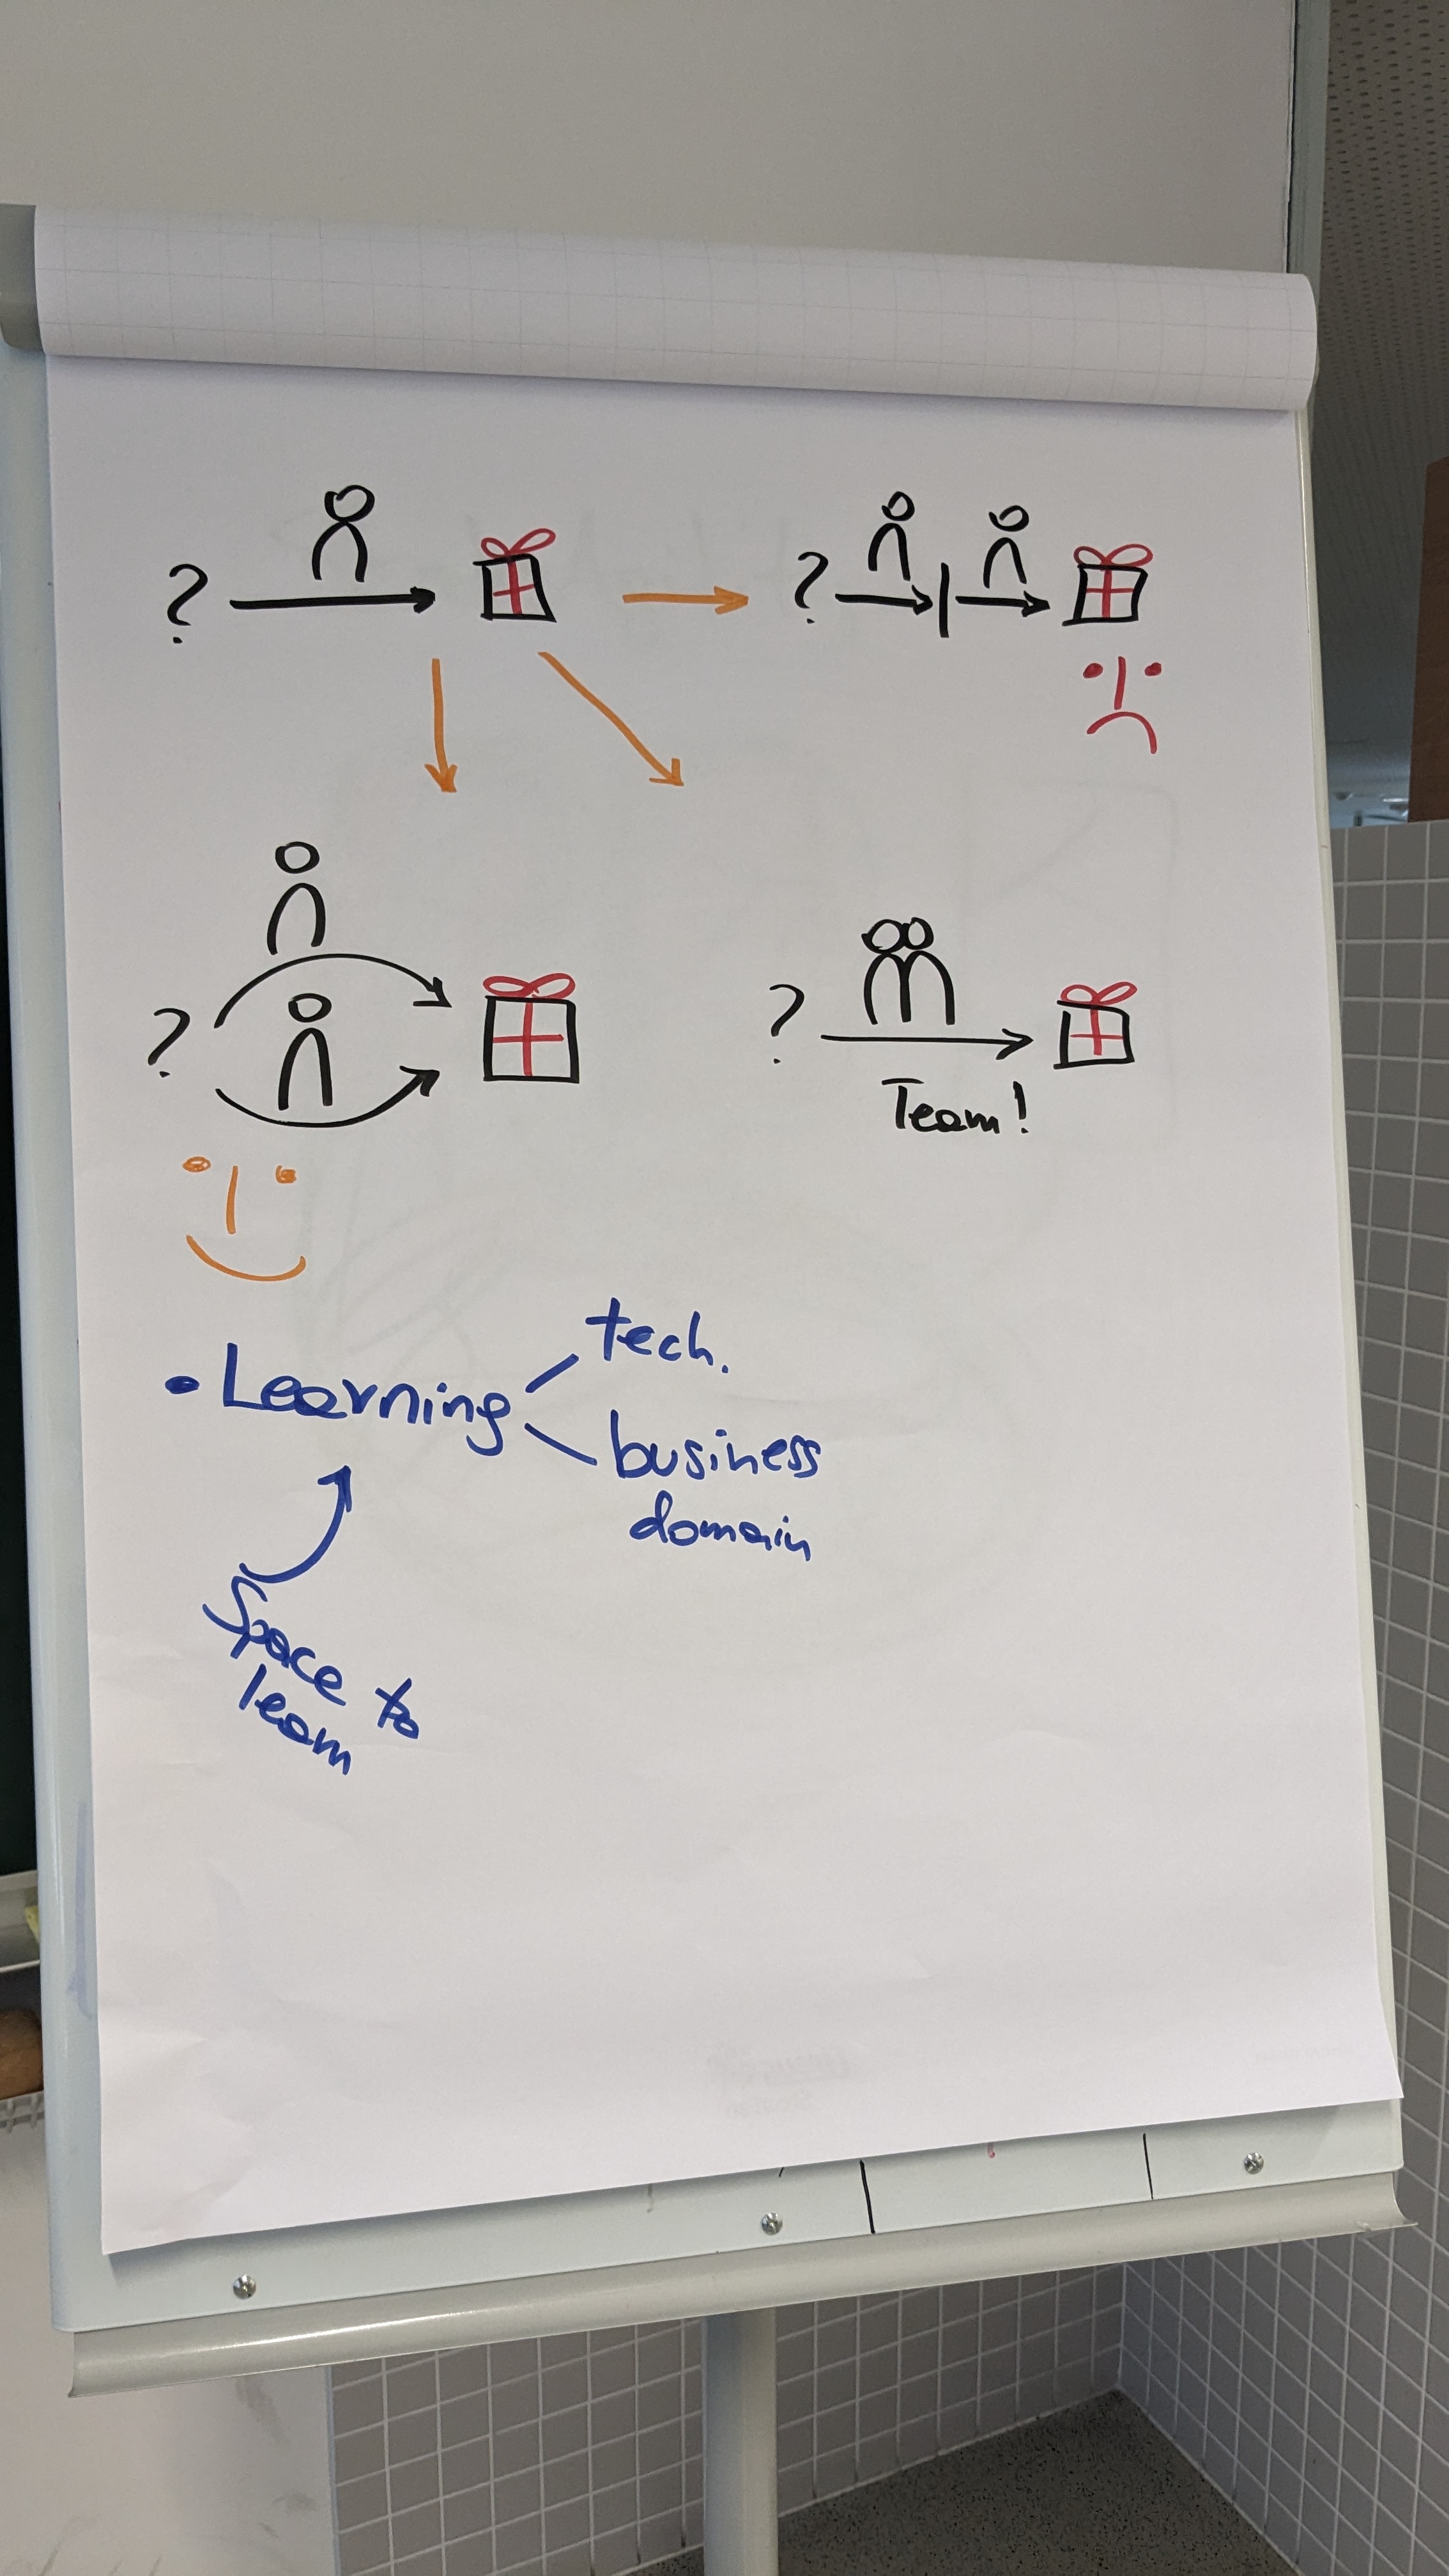 ?
?
?
?
Team!
• Learning
tech.
business
domain
Space to
learn